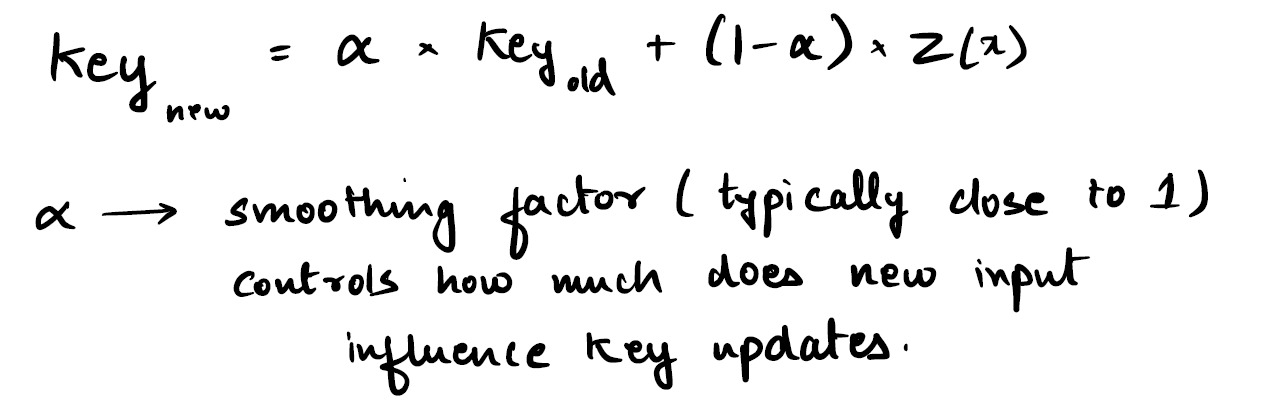 key new = α × key old + (1-α) × z(x)
α → smoothing factor (typically close to 1)
controls how much does new input
influence key updates.